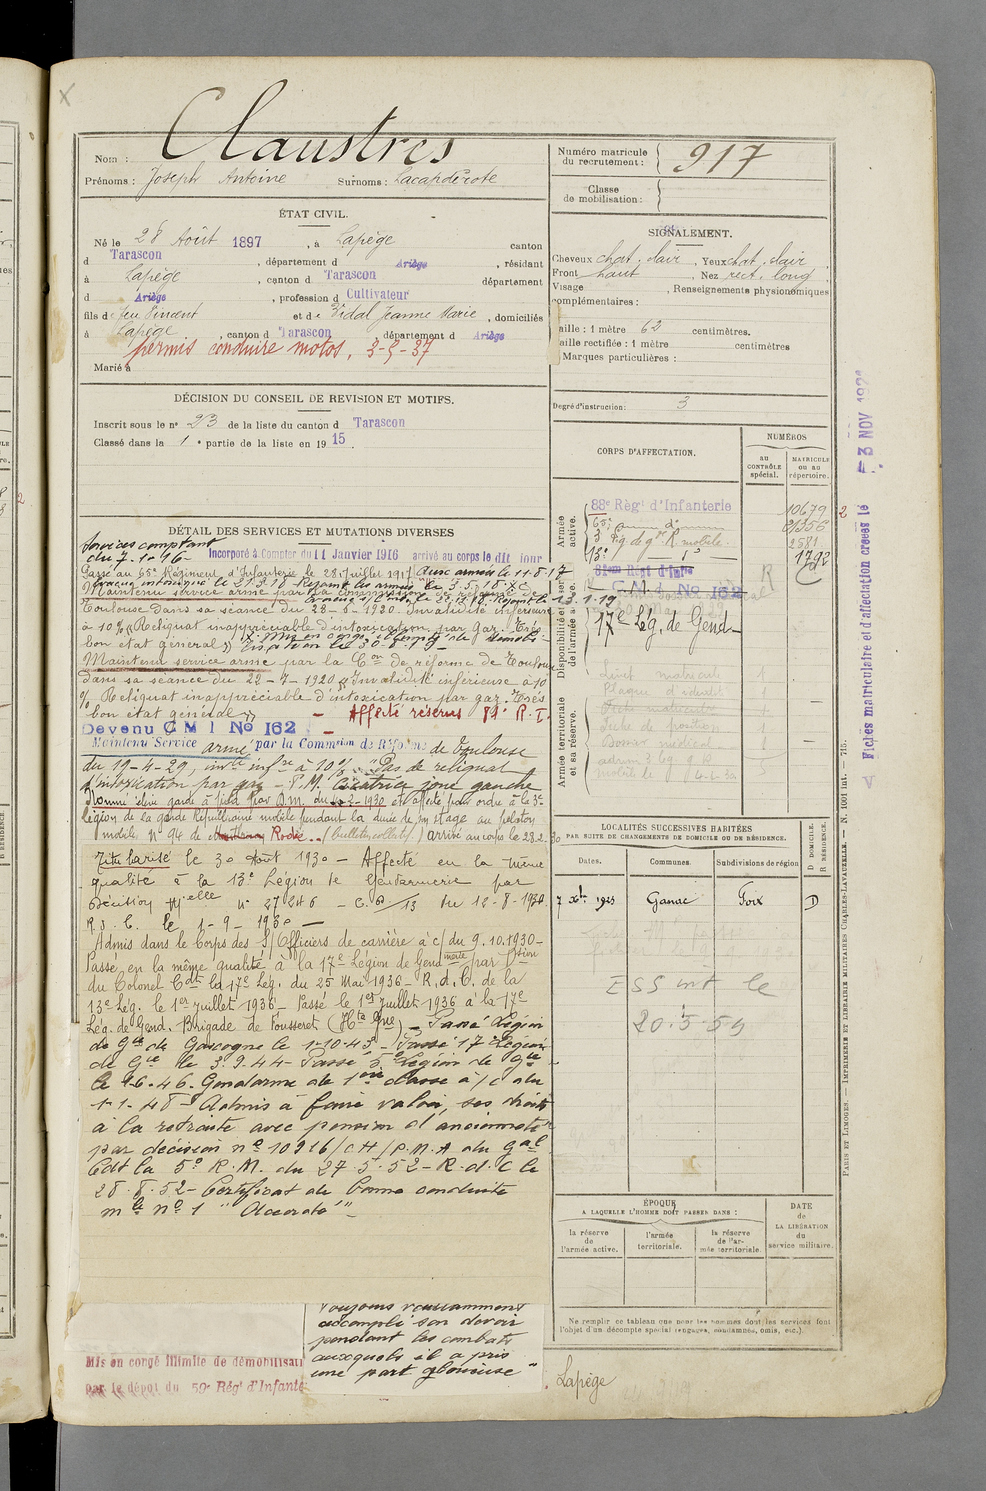 Claustres
Nom :
Prénoms : Joseph Antoine Surnoms : Lacapderote
ÉTAT CIVIL.
Né le 28 Août 1897, à Lapège canton
d Tarascon, département d Ariège, résidant
à Lapège, canton d Tarascon département
d Ariège, profession d Cultivateur
fils d feu Vincent et de Vidal Jeanne Marie, domiciliés
à Lapège, canton d Tarascon département d Ariège
permis conduire motos, 3-5-37
Marié à
DÉCISION DU CONSEIL DE REVISION ET MOTIFS.
Inscrit sous le n° 23 de la liste du canton d Tarascon
Classé dans la 1e partie de la liste en 1915.
DÉTAIL DES SERVICES ET MUTATIONS DIVERSES
Services comptant
du 7.1.16
Incorporé à Compter du 11 Janvier 1916 arrivé au corps le dit jour
Passé au 65e Régiment d'Infanterie le 28 Juillet 1917 Aux armées le 11.8.17
Maintenu service armé par la commission de réforme de
Toulouse dans sa séance du 28-6-1920. Invalidité inférieure
à 10 % Reliquat inappréciable d'intoxication par gaz. Très
bon état général
Maintenu service armé par la Con de réforme de Toulouse
dans sa séance du 22-7-1920 Invalidité inférieure à 10
% Reliquat inappréciable d'intoxication par gaz. Très
bon état général - Affecté réserves 81e R.I.
Devenu C M I No 162
Maintenu Service armé par la Commsion de Réforme de Toulouse
du 19-4-29, inv.té inf.re à 10 % "Pas de reliquat
d'intoxication par gaz - P.M. Cicatrice joue gauche
Nommé élève garde à pied par D.M. du 10-2-1930 et affecté pour ordre à la 3e
légion de la garde Républicaine mobile pendant la durée de son stage au peloton
mobile N° 94 de Rodez (bulletin collectif) arrivé au corps le 28.2.30
Titularisé le 30 Août 1930 - Affecté en la même
qualité à la 13e Légion de Gendarmerie par
Décision Mlelle n° 27246 - C.P/13 du 12-8-1930.
R.d.C. le 1-9-1930
Admis dans le Corps des S/Officiers de carrière à c/ du 9.10.1930-
Passé en la même qualité à la 17e Légion de Gendmerie par Dsion
du Colonel Cdt la 17e Lég. du 25 Mai 1936 - R.d.C. de la
13e Lég. le 1er Juillet 1936 - Passé le 1er Juillet 1936 à la 17e
Lég. de Gend. Brigade de Fousseret (Hte Gne) - Passé Légion
de Gie de Gascogne le 1-10-43 - Passé 17e Légion
de Gie le 3.9.44 - Passé 5e Légion de Gie
le 1-6-46. Gendarme de 1ère classe à/c du
1-1-48 - Admis à faire valoir ses droits
à la retraite avec pension d'ancienneté
par décision n° 10916/CH/P.M.A du Gal
Cdt la 5e R.M. du 27.5.52 - R.d.C le
28.8.52 - Certificat de bonne conduite
mle n° 1 "Accordé"
Mis en congé illimité de démobilisati
par le dépôt du 59e Régt d'Infante
toujours vaillamment
accompli son devoir
pendant les combats
auxquels il a pris
une part glorieuse"
Numéro matricule
du recrutement : 917
Classe
de mobilisation :
SIGNALEMENT.
Cheveux chat. clair, Yeux chat. clair
Front haut, Nez rect. long
Visage, Renseignements physionomiques
complémentaires :
Taille : 1 mètre 62 centimètres.
Taille rectifiée : 1 mètre centimètres
Marques particulières :
Degré d'instruction : 3
CORPS D'AFFECTATION.
NUMÉROS
au
CONTRÔLE
spécial.
MATRICULE
ou au
répertoire.
Armée
active.
88e Régt d'Infanterie 10679
65e d°
3e Lég. de gde R. mobile 2581
13e d° 1792
2
Disponibilité et réserve
de l'armée active.
81em Régt d'Infie
C.M.I. No 162
17e Lég. de Gend
Armée territoriale
et sa réserve.
Livret matricule 1
Plaque d'identité 1
Fiche matricule 1
LOCALITÉS SUCCESSIVES HABITÉES
PAR SUITE DE CHANGEMENTS DE DOMICILE OU DE RÉSIDENCE.
D DOMICILE.
R RÉSIDENCE.
Dates. Communes. Subdivisions de région
7 Xbre 1923 Ganac Foix D
ESS int le
20.5.54
ÉPOQUE
A LAQUELLE L'HOMME DOIT PASSER DANS :
DATE
de
LA LIBÉRATION
du
service militaire.
la réserve
de
l'armée active.
l'armée
territoriale.
la réserve
de l'ar-
mée territoriale.
Ne remplir ce tableau que pour les hommes dont les services font
l'objet d'un décompte spécial (engagés, condamnés, omis, etc.).
Lapège
Fiches matriculaire et d'affectation créées le 3 NOV 192
PARIS ET LIMOGES. — IMPRIMERIE ET LIBRAIRIE MILITAIRES CHARLES-LAVAUZELLE. — N. 1001 int. — 715.